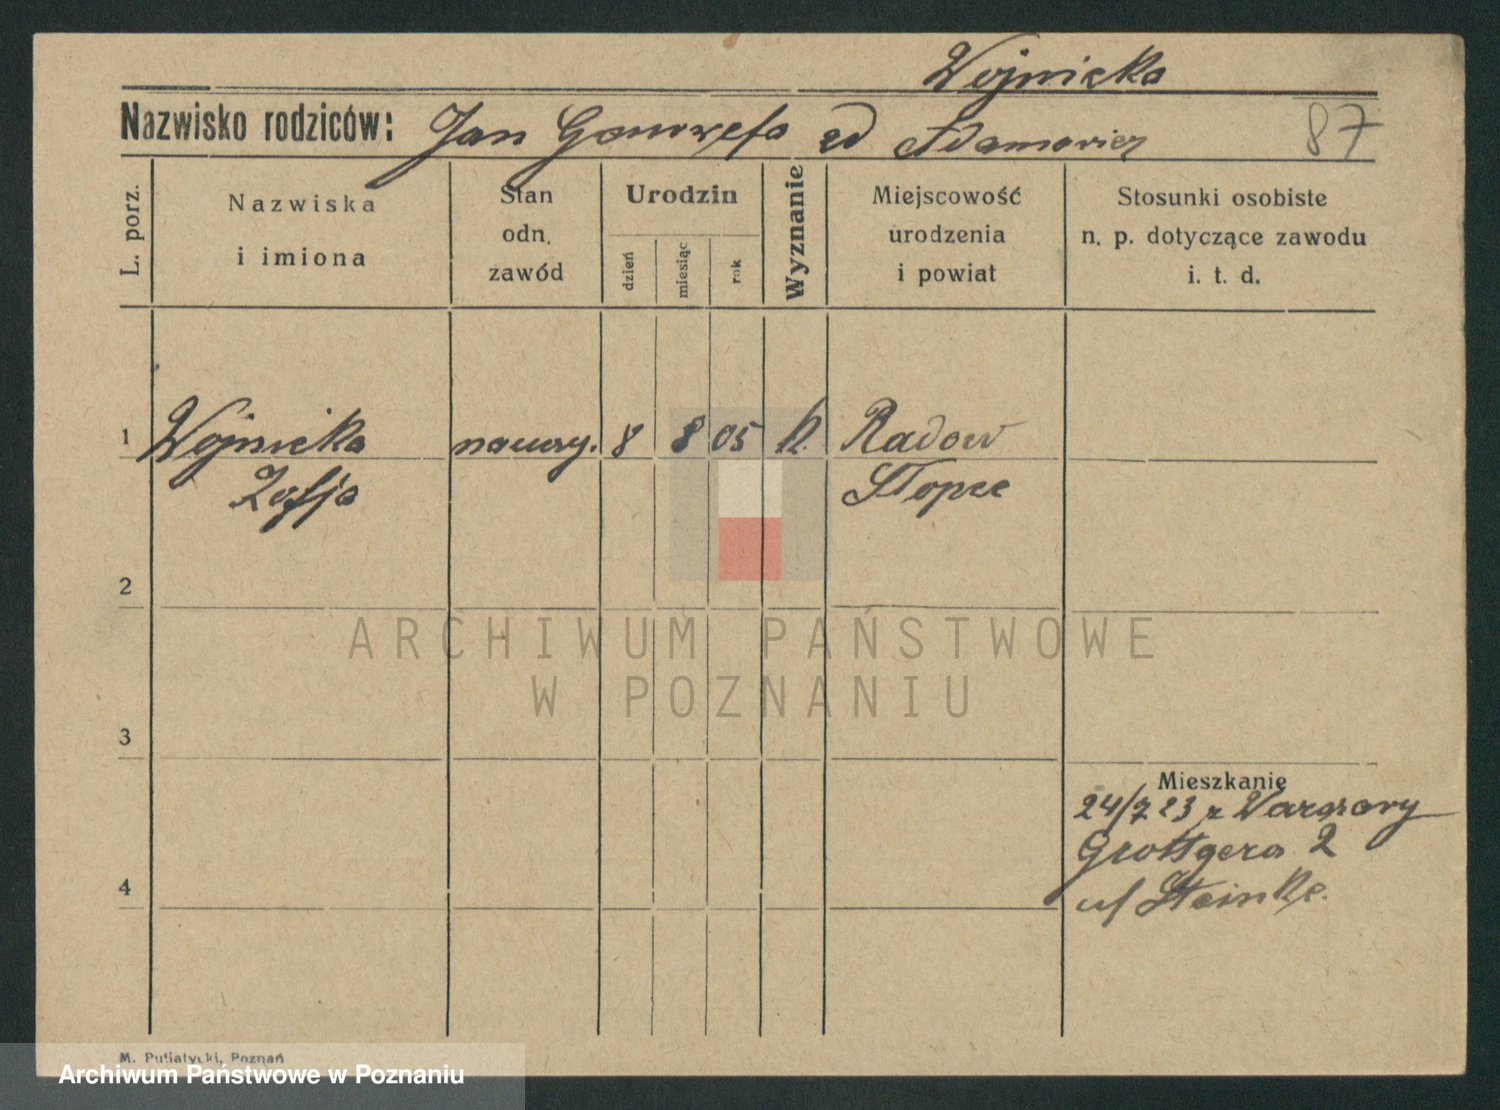 Wojnicka
Nazwisko rodziców: Jan Genowefa zd Adamowicz 87
L. porz.
Nazwiska
i imiona
Stan
odn.
zawód
Urodzin
dzień
miesiąc
rok
Wyznanie
Miejscowość
urodzenia
i powiat
Stosunki osobiste
n. p. dotyczące zawodu
i. t. d.
1 Wojnicka nauczy. 8 8 05 k. Radow
Zofja Słopce
2
ARCHIWUM PAŃSTWOWE
W POZNANIU
3
Mieszkanie
24/7 23 z Warszawy
Grottgera 2
4
u/ Steinke.
M. Putiatycki, Poznań
Archiwum Państwowe w Poznaniu